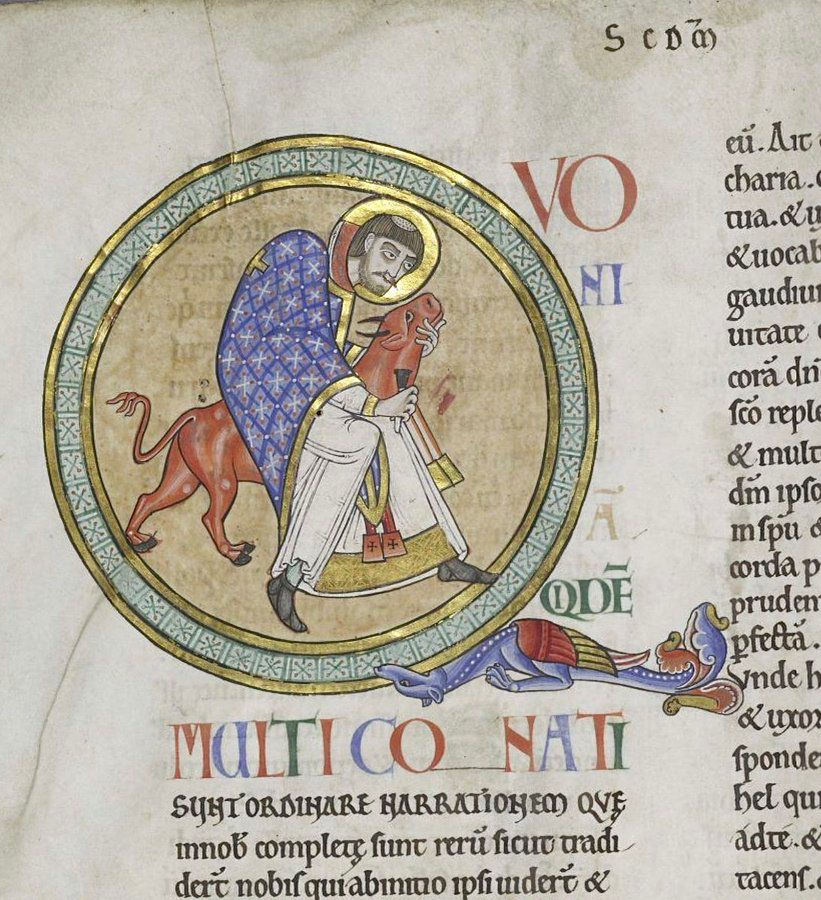 S c D m̄
Q VO
NI-
Ā
QIDĒ
MULTI CONATI
SUNT ORDINARE NARRATIONEM QVĘ
innob̄ completę sunt rerū sicut tradi
der̄t nobis qui ab initio ipsi uider̄t &
eū. Ait
charia.
tua. &
& uocab
gaudiu
uitate
corā dn̄
sc̄o reple
& mult
dm̄ ipso
in sp̄u
corda p
pruden
ꝑfectā.
Vnde h
& uxor
sponde
hel qui
ad te. &
tacens.